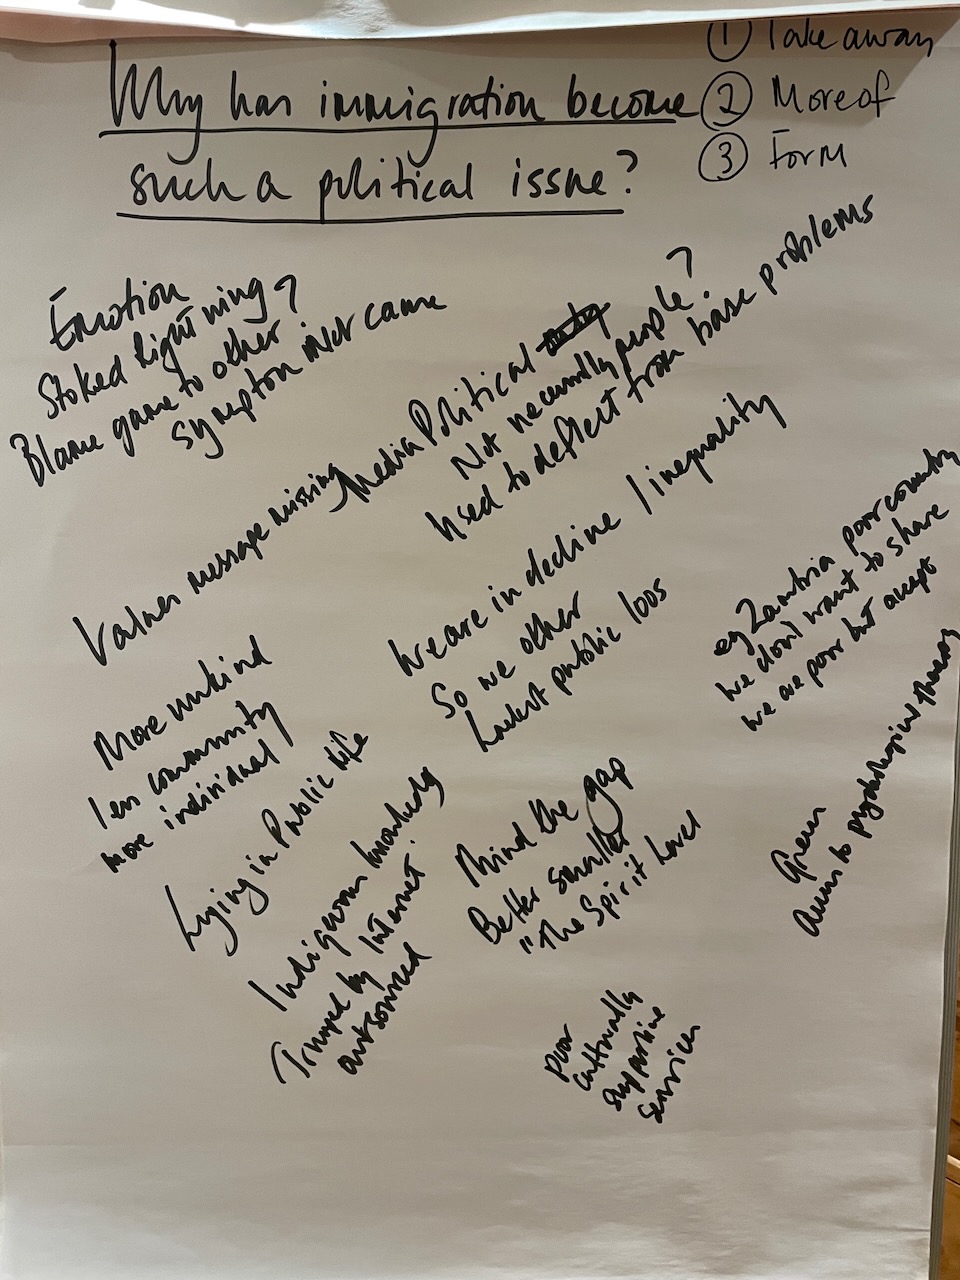 Why has immigration become
such a political issue?
① Take away
② More of
③ Form
Emotion
Stoked Right wing?
Blame game to other
symptom not cause
Media Political
Not necessarily people?
Used to deflect from base problems
Values message missing
We are in decline / inequality
So we other
Lowest public loos
eg Zambia poor country
we don't want to share
we are poor but accept
More unkind
less community
more individual
Lying in Public life
Indigenous knowledge
Trumped by Internet.
outsourced
Mind the gap
Better smaller
"The Spirit Level
Green
Access to psychological
poor
culturally
supportive
services